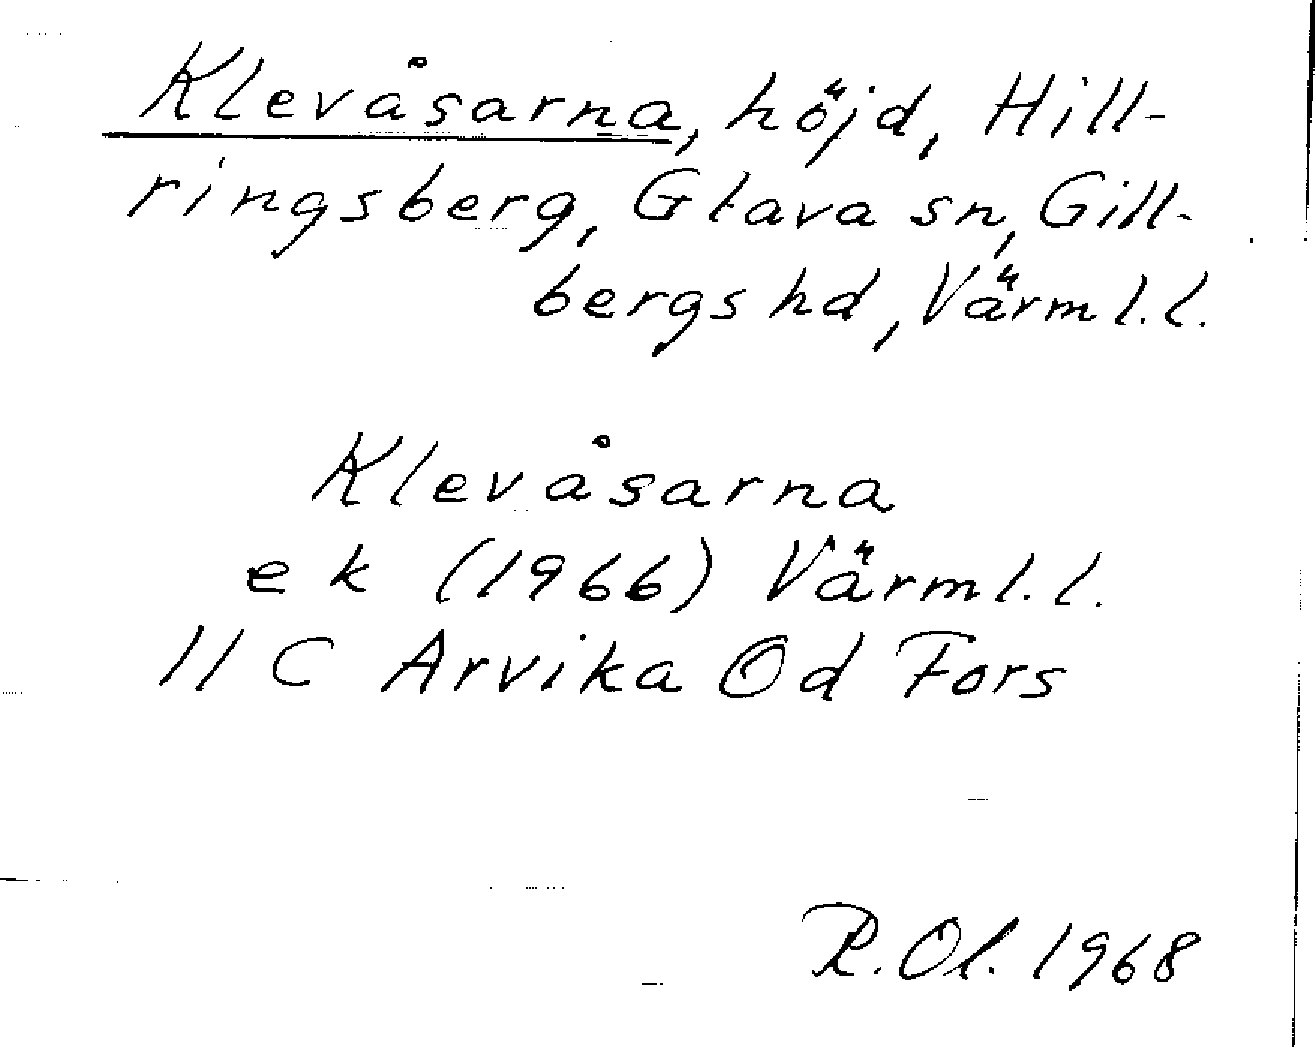 Klevåsarna, höjd, Hill-
ringsberg, Glava sn, Gill-
bergs hd, Värml. l.
Klevåsarna
ek (1966) Värml. l.
11 C Arvika Od Fors
R. Ol. 1968